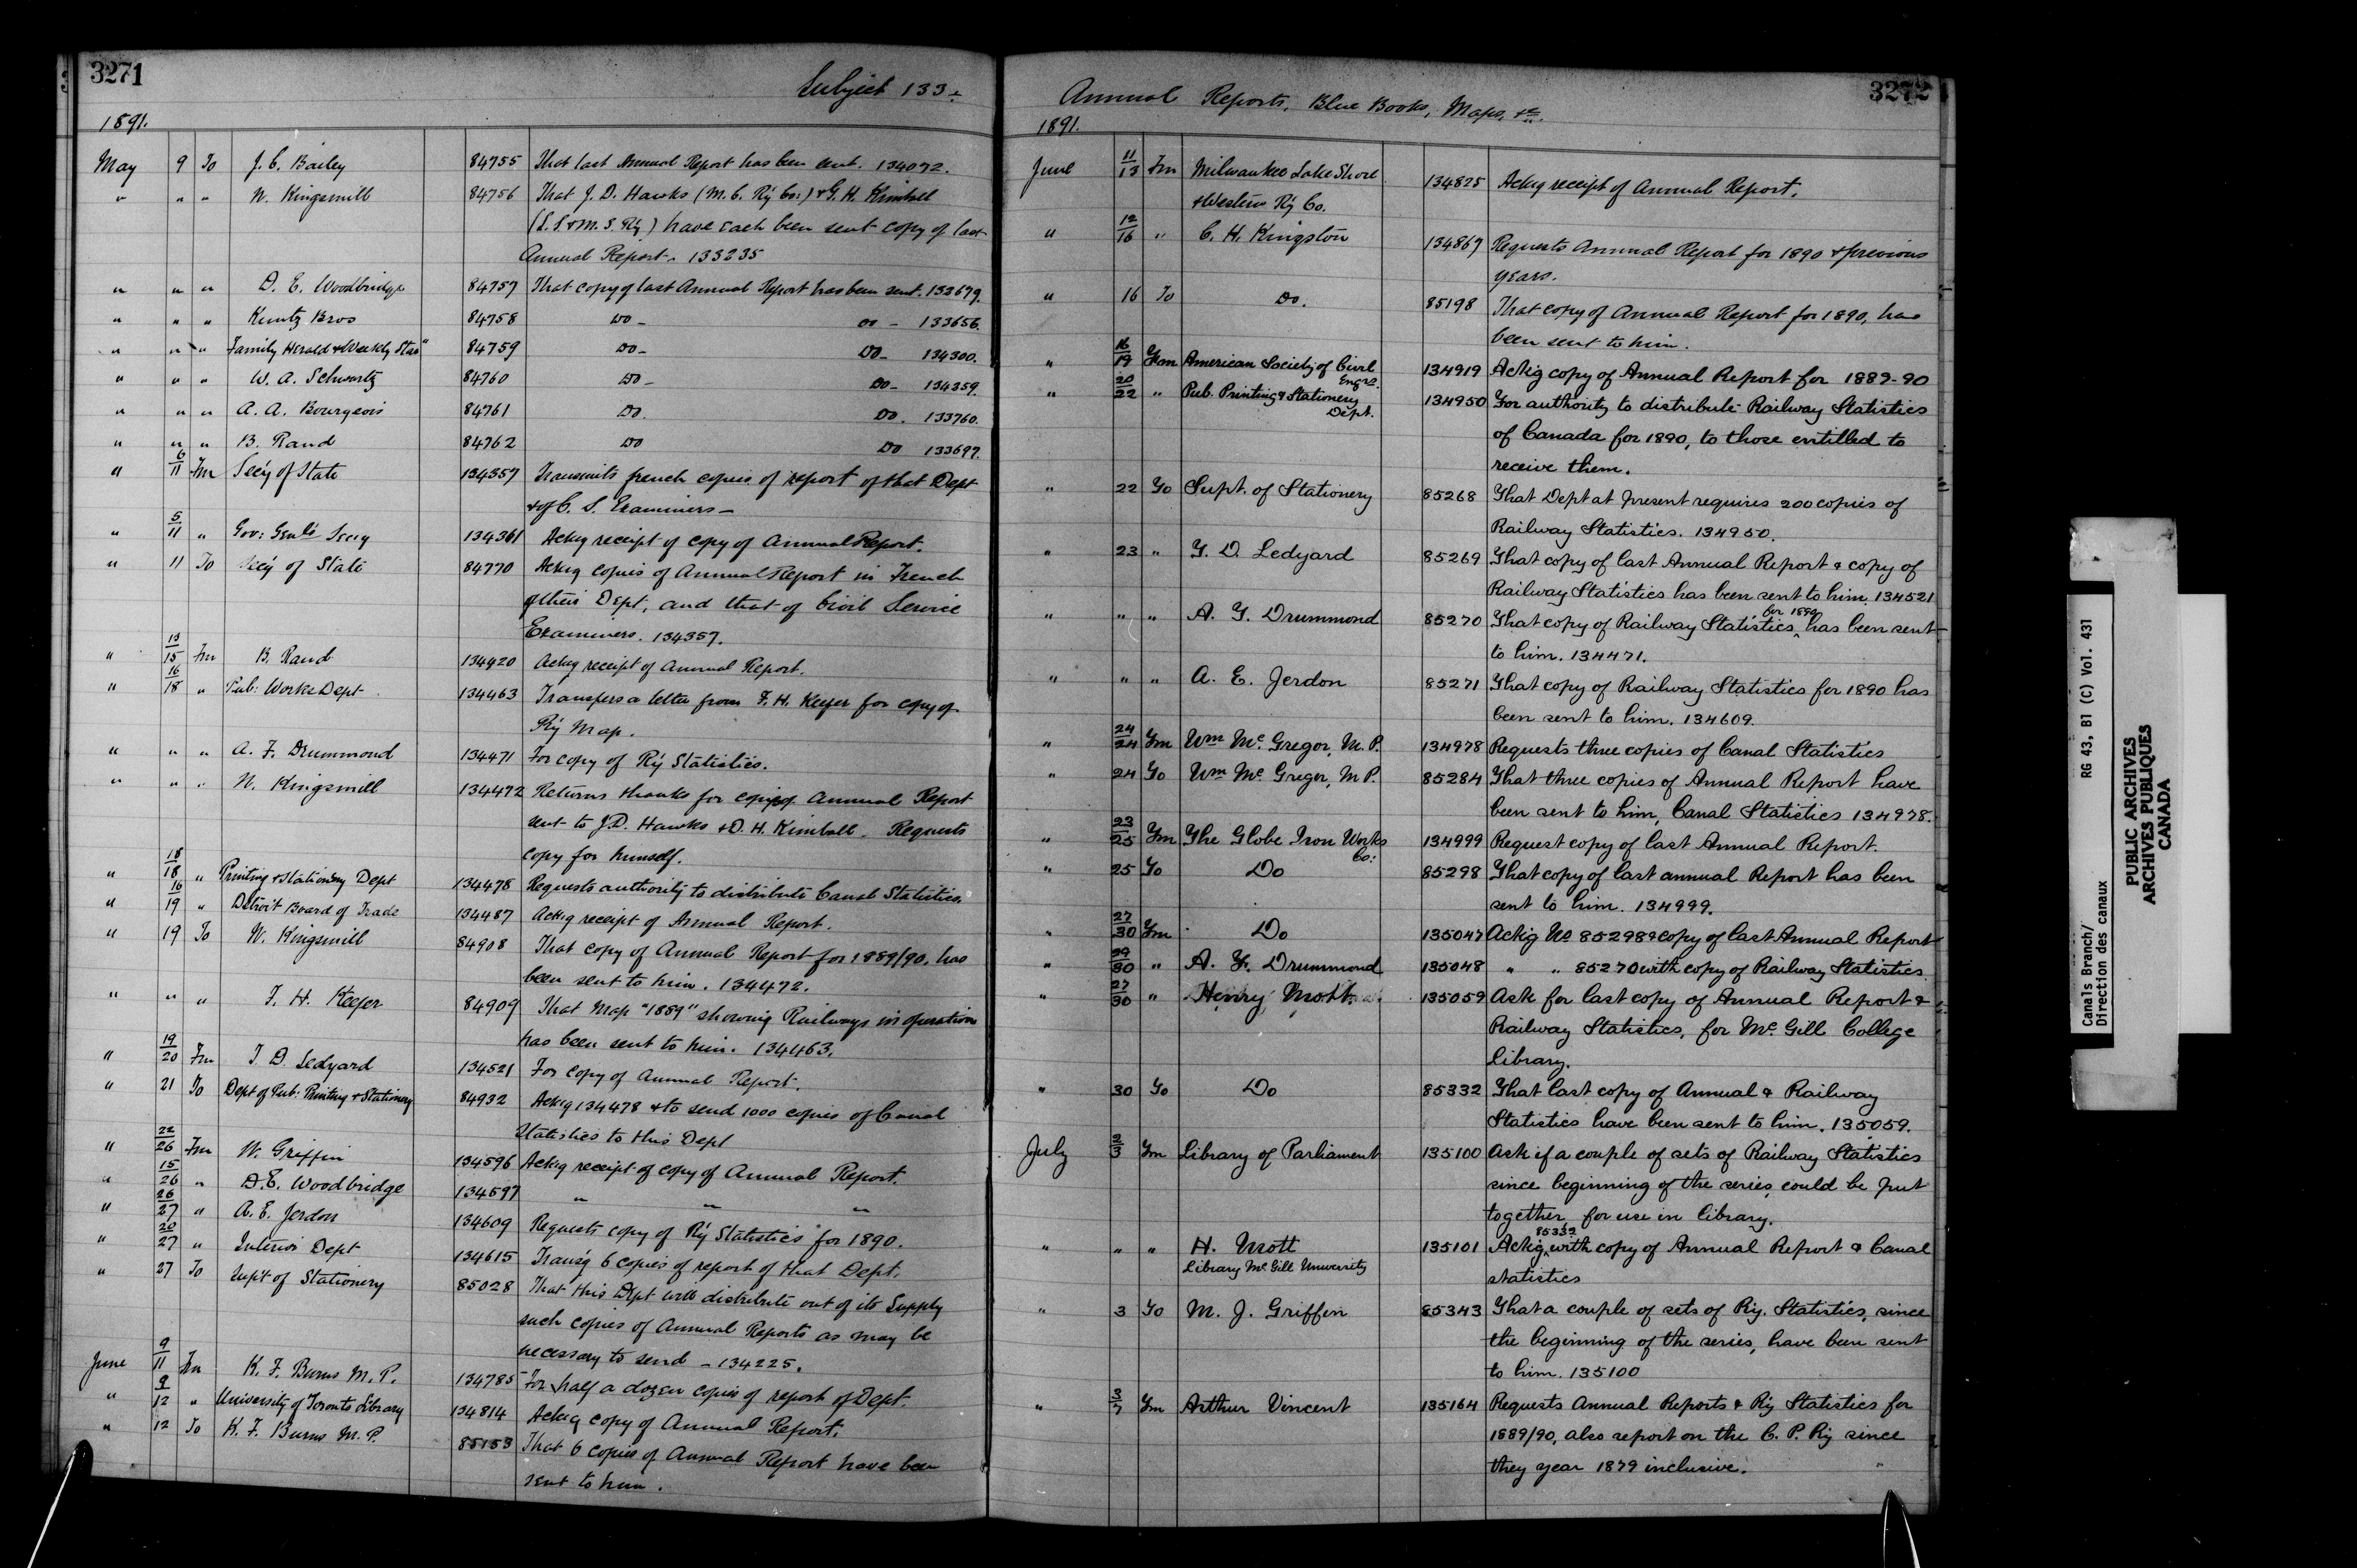 3271
Subject 133.
1891.
May 9 To J. C. Bailey 84755 That last Annual Report has been sent. 134072.
" " " N. Kingsmill 84756 That J. D. Hawks (M. C. Ry Co.) & G. H. Kimball
(L. S. & M. S. Ry) have each been sent copy of last
Annual Report. 133235
" " " D. E. Woodbridge 84757 That copy of last Annual Report has been sent. 133679.
" " " Kuntz Bros 84758 Do - Do - 133656.
" " " Family Herald & Weekly Star" 84759 Do - Do - 134300.
" " " W. A. Schwartz 84760 Do - Do - 134359.
" " " A. A. Bourgeois 84761 Do. Do. 133760.
" " " B. Rand 84762 Do Do 133697.
" 6/11 Fm Secy of State 134357 Transmits french copies of report of that Dept
& of C. S. Examiners -
" 5/11 " Gov: Genl's Secy 134361 Ackg receipt of copy of Annual Report.
" 11 To Secy of State 84770 Ackg copies of Annual Report in French
of their Dept, and that of Civil Service
Examiners. 134357.
" 13/15 Fm B. Rand 134420 Ackg receipt of Annual Report.
" 16/18 " Pub: Works Dept 134463 Transfers a letter from F. H. Keefer for copy of
Ry Map.
" " " A. F. Drummond 134471 For copy of Ry Statistics.
" " " N. Kingsmill 134472 Returns thanks for copies of Annual Report
sent to J. D. Hawks & D. H. Kimball. Requests
copy for himself.
" 18/18 " Printing & Stationery Dept 134478 Requests authority to distribute Canal Statistics.
" 16/19 " Detroit Board of Trade 134487 Ackg receipt of Annual Report.
" 19 To N. Kingsmill 84908 That copy of Annual Report for 1889/90, has
been sent to him. 134472.
" " " F. H. Keefer 84909 That Map "1889" showing Railways in operation
has been sent to him. 134463.
" 19/20 Fm T. D. Ledyard 134521 For copy of Annual Report.
" 21 To Dept of Pub: Printing & Stationery 84932 Ackg 134478 & to send 1000 copies of Canal
Statistics to this Dept
" 22/26 Fm W. Griffin 134596 Ackg receipt of copy of Annual Report.
" 15/26 " D. E. Woodbridge 134597 " " "
" 26/27 " A. E. Jerdon 134609 Requests copy of Ry Statistics for 1890.
" 20/27 " Interior Dept 134615 Transg 6 copies of report of that Dept.
" 27 To Supt of Stationery 85028 That this Dept will distribute out of its Supply
such copies of Annual Reports as may be
necessary to send - 134225.
June 9/11 Fm K. F. Burns M. P. 134785 For half a dozen copies of report of Dept.
" 9/12 " University of Toronto Library 134814 Ackg copy of Annual Report.
" 12 To K. F. Burns M. P. 85153 That 6 copies of Annual Report have been
sent to him.
3272
Annual Reports, Blue Books, Maps, &c.
1891.
June 11/13 Fm Milwaukee Lake Shore
& Western Ry Co. 134825 Ackg receipt of Annual Report.
" 12/16 " C. H. Kingston 134867 Requests Annual Report for 1890 & previous
years.
" 16 To Do. 85198 That copy of Annual Report for 1890, has
been sent to him.
" 16/19 Fm American Society of Civil
Engrs. 134919 Ackg copy of Annual Report for 1889-90
" 20/22 " Pub. Printing & Stationery
Dept. 134950 For authority to distribute Railway Statistics
of Canada for 1890, to those entitled to
receive them.
" 22 To Supt. of Stationery 85268 That Dept at present requires 200 copies of
Railway Statistics. 134950.
" 23 " T. D. Ledyard 85269 That copy of last Annual Report & copy of
Railway Statistics has been sent to him. 134521
" " " A. T. Drummond 85270 That copy of Railway Statistics for 1890 has been sent
to him. 134471.
" " " A. E. Jerdon 85271 That copy of Railway Statistics for 1890 has
been sent to him. 134609.
" 24/24 Fm Wm Mc. Gregor, M. P. 134978 Requests three copies of Canal Statistics
" 24 To Wm Mc. Gregor, M P. 85284 That three copies of Annual Report have
been sent to him, Canal Statistics 134978.
" 23/25 Fm The Globe Iron Works
Co: 134999 Request copy of last Annual Report.
" 25 To Do 85298 That copy of last annual Report has been
sent to him. 134999.
" 27/30 Fm Do 135047 Ackg No 85298 & copy of last Annual Report
" 29/30 " A. F. Drummond 135048 " " 85270 with copy of Railway Statistics
" 27/30 " Henry Mott. 135059 Ask for last copy of Annual Report &
Railway Statistics, for Mc. Gill College
Library.
" 30 To Do 85332 That last copy of Annual & Railway
Statistics have been sent to him. 135059.
July 2/3 Fm Library of Parliament 135100 Ask if a couple of sets of Railway Statistics
since beginning of the series, could be put
together for use in library.
" " " H. Mott
Library Mc. Gill University 135101 Ackg 85332 with copy of Annual Report & Canal
statistics
" 3 To M. J. Griffin 85343 That a couple of sets of Ry. Statistics, since
the beginning of the series, have been sent
to him. 135100
" 3/7 Fm Arthur Vincent 135164 Requests Annual Reports & Ry Statistics for
1889/90, also report on the C. P. Ry since
they year 1879 inclusive.
Canals Branch/ RG 43, B1 (C) Vol. 431
Direction des canaux
PUBLIC ARCHIVES
ARCHIVES PUBLIQUES
CANADA